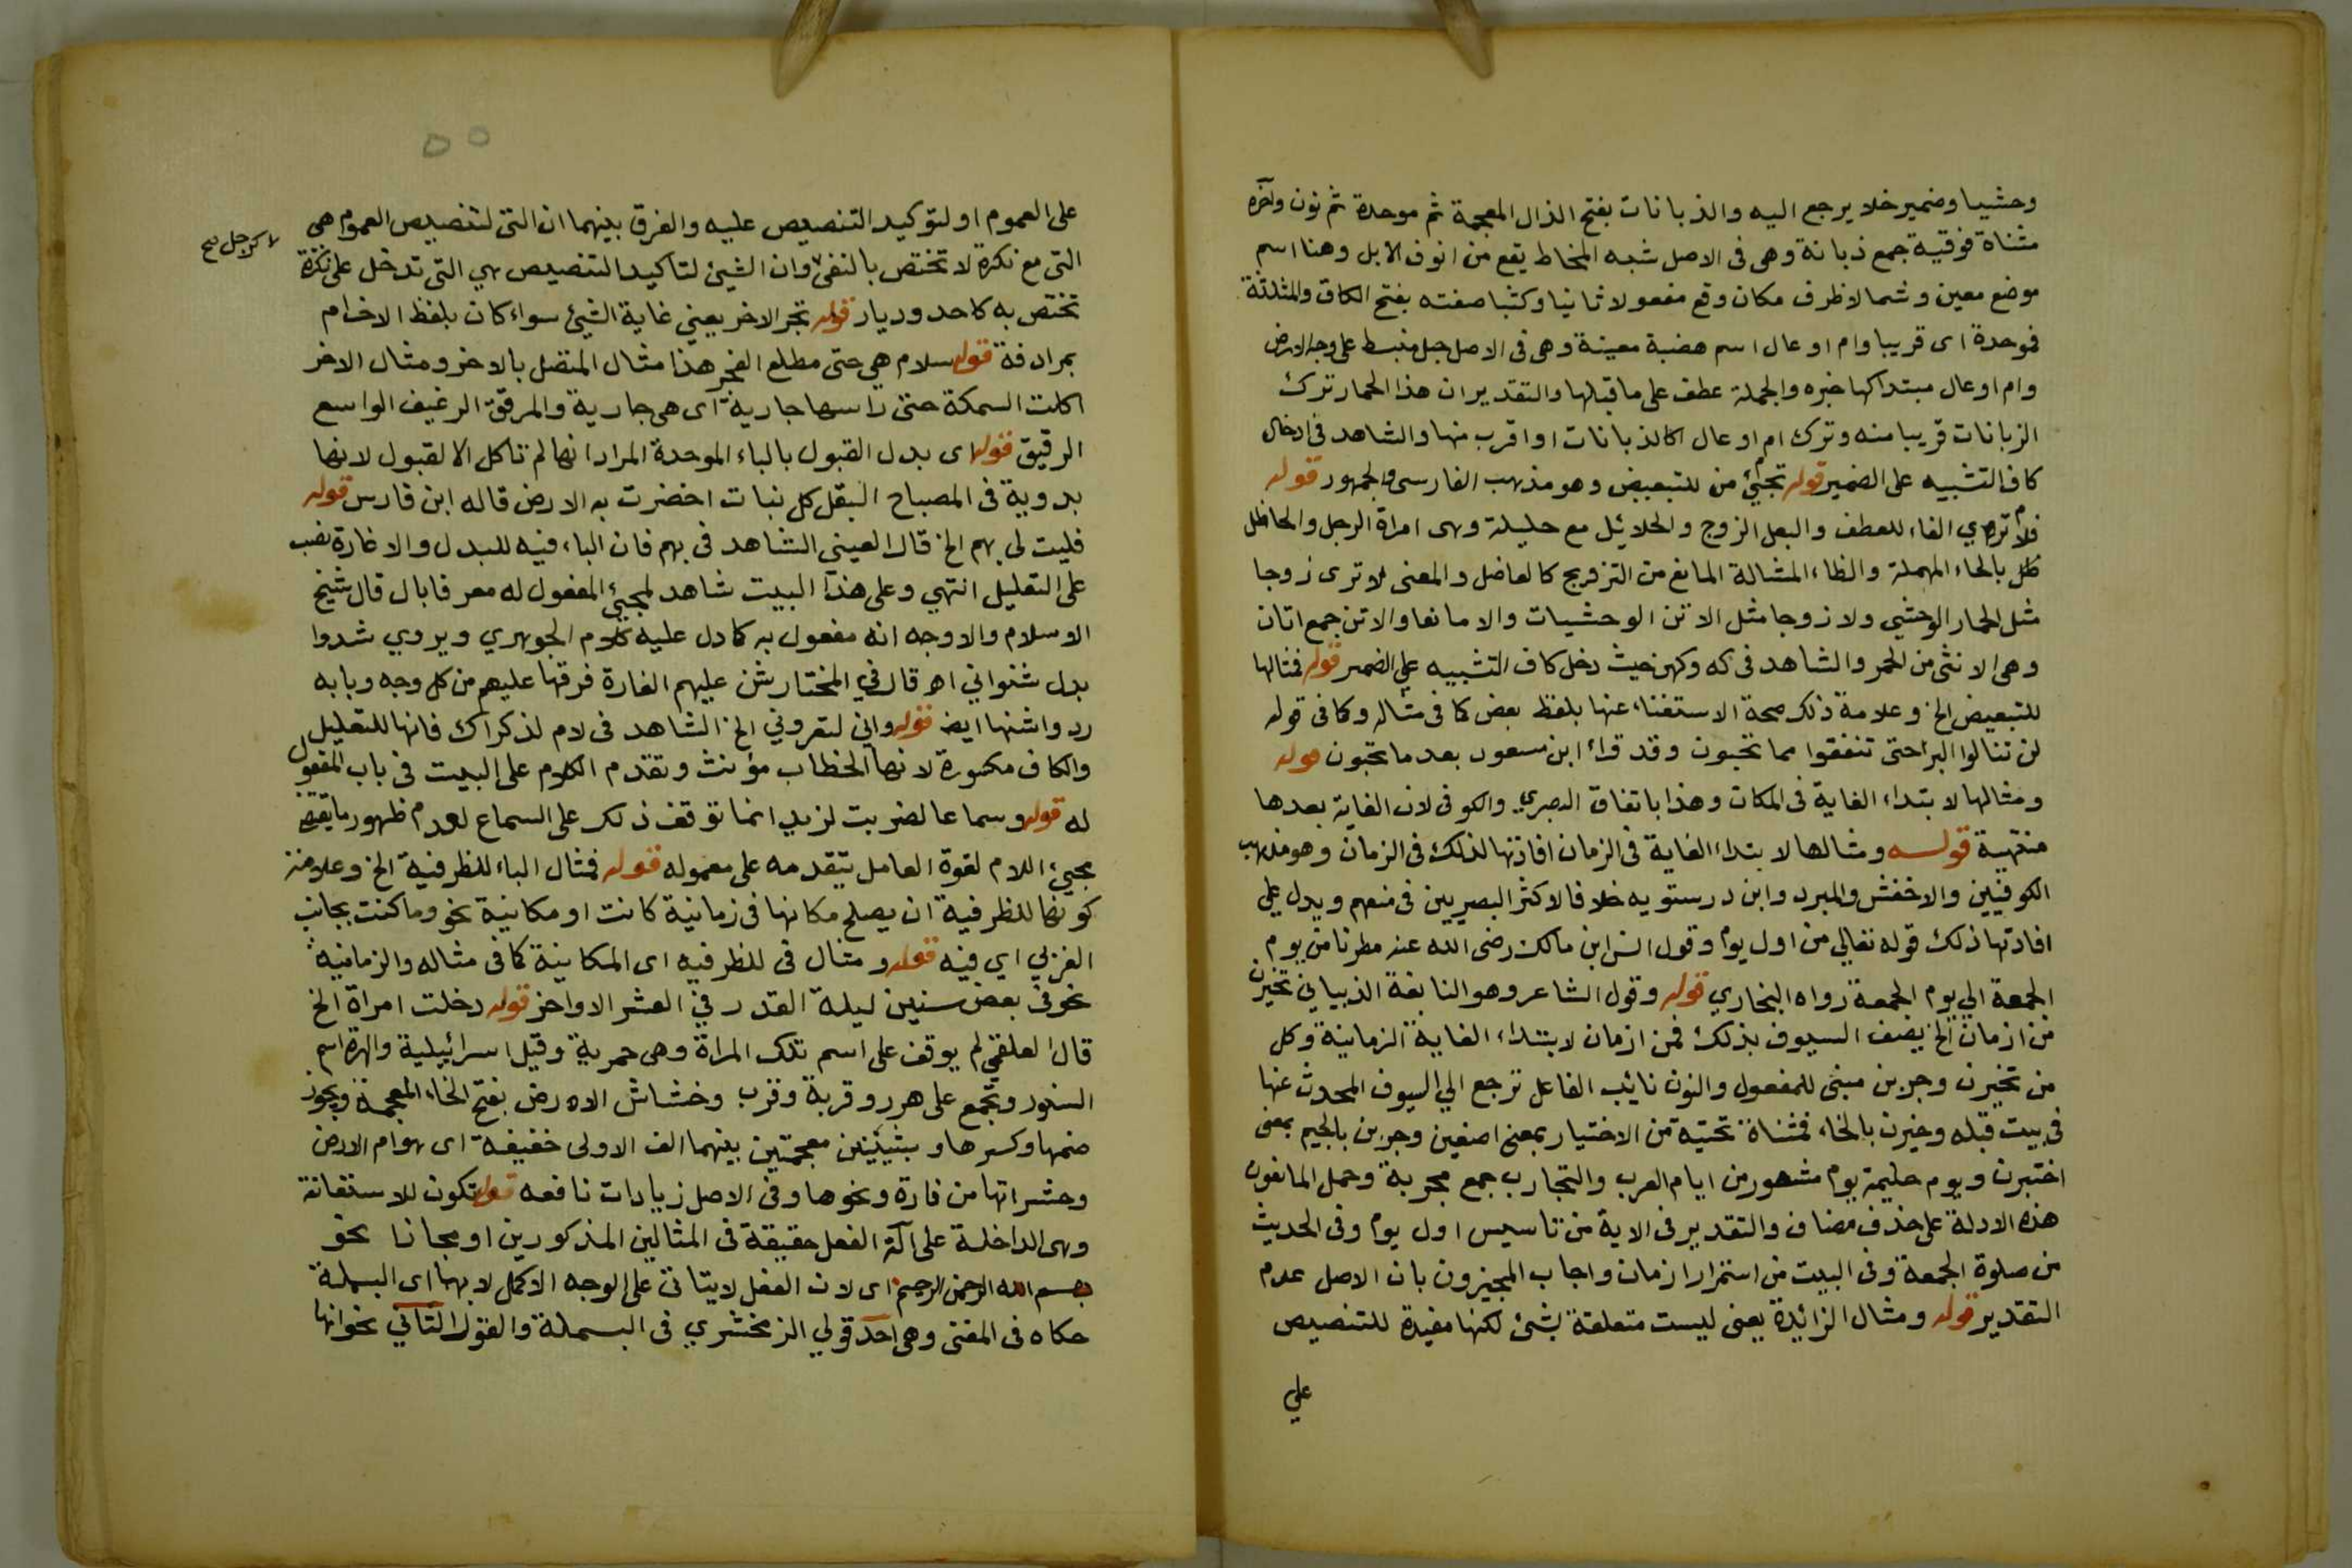 وحشيا وضمير خلا يرجع اليه والذبانات بفتح الذال المعجمة ثم موحدة ثم نون واخره
مثناة فوقية جمع ذبانة وهى فى الاصل شبه المخاط يقع من انوف الابل وهنا اسم
موضع معين وشمالا ظرف مكان وقع مفعولا ثانيا وكثبا صفته بفتح الكاف والمثلثة
فموحدة اى قريبا وام اوعال اسم هضبة معينة وهى فى الاصل جبل منبسط على وجه الارض
وام اوعال مبتدا كها خبره والجملة عطف على ما قبلها والتقدير ان هذا الحمار ترك
الزبانات قريبا منه وترك ام اوعال كالذبانات او اقرب منها والشاهد فى ادخال
كاف التشبيه على الضمير قوله تجئ من للتبعيض وهو مذهب الفارسى والجمهور قوله
فلا ترى الفاء للعطف والبعل الزوج والحلائل مع حليلة وهى امراة الرجل والحاظل
ظل بالحاء المهملة والظاء المشالة المانع من التزويج كالعاضل والمعنى لا ترى زوجا
مثل الحمار الوحشى ولا زوجا مثل الاتن الوحشيات والا مانعا والاتن جمع اتان
وهى الانثى من الحمر والشاهد فى كه وكهن حيث دخل كاف التشبيه على الضمير قوله فمثالها
للتبعيض الخ وعلامة ذلك صحة الاستغناء عنها بلفظ بعض كما فى مثاله وكما فى قوله
لن تنالوا البر احتى تنفقوا مما تحبون وقد قراء ابن مسعود بعد ما تحبون قوله
ومثالها لابتداء الغاية فى المكان وهذا باتفاق البصري والكوفى لان الغاية بعدها
منتهية قولـه ومثالها لابتداء الغاية فى الزمان افادتها لذلك فى الزمان وهو مذهب
الكوفيين والاخفش والمبرد وابن درستويه خلافا لاكثر البصريين فى منعهم ويدل على
افادتها ذلك قوله تعالى من اول يوم وقول انس ابن مالك رضى الله عنه مطرنا من يوم
الجمعة الى يوم الجمعة رواه البخاري قوله وقول الشاعر وهو النابغة الذبياني تخيرن
من ازمان الخ يصف السيوف بذلك فمن ازمان لابتداء الغاية الزمانية وكل
من تخيرن وجربن مبنى للمفعول والنون نايب الفاعل ترجع الى السيوف المحدث عنها
فى بيت قبله وخيرن بالخاء فمثناة تحتيه من الاختيار بمعنى اصنعين وجربن بالجيم بمعنى
اختبرن ويوم حليمة يوم مشهور من ايام العرب والتجارب جمع تجربة وحمل المانعون
هذه الادلة على حذف مضاف والتقدير فى الاية من تاسيس اول يوم وفى الحديث
من صلوة الجمعة وفى البيت من استمرار ازمان واجاب المجيزون بان الاصل عدم
التقدير قوله ومثال الزائدة يعنى ليست متعلقة بشئ لكنها مفيدة للتنصيص
على
على العموم او لتوكيد التنصيص عليه والفرق بينهما ان التى لتنصيص العموم هى
التى مع نكرة لا تختص بالنفى وان الشيئ لتاكيد التنصيص هي التى تدخل على نكرة
تختص به كاحد وديار قوله تجر الاخر يعني غاية الشيئ سواء كان بلفظ الاخر ام
بمرادفة قوله سلام هى حتى مطلع الفجر هذا مثال المتصل بالاخر ومثال الاخر
اكلت السمكة حتى راسها جارية اى هى جارية والمرقق الرغيف الواسع
الرقيق قوله اى بدل القبول بالباء الموحدة المراد انها لم تاكل الا لقبول لانها
بدوية فى المصباح البقل كل نبات اخضرت به الارض قاله ابن فارس قوله
فليت لى بهم الخ قال العينى الشاهد فى بهم فان الباء فيه للبدل والاغارة نصب
على التعليل انتهي وعلى هذا البيت شاهد لمجيئ المفعول له معرفا بال قال شيخ
الاسلام والاوجه انه مفعول به كما دل عليه كلام الجوهري ويروي شدوا
بدل شنواني اه قال في المختار شن عليهم الغارة فرقها عليهم من كل وجه وبابه
رد واشنها ايضـ قوله واني لتعروني الخ الشاهد فى لام لذكراك فانها للتعليل
والكاف مكسورة لانها الخطاب مؤنث وتقدم الكلام على البيت فى باب المفعول
له قوله وسماعا لضربت لزيد انما توقف ذلك على السماع لعدم ظهور ما يقتضى
مجيئ اللام لقوة العامل بتقدمه على معموله قوله فمثال الباء للظرفية الخ وعلامة
كونها للظرفية ان يصلح مكانها فى زمانية كانت او مكانية نحو وما كنت بجانب
الغربي اي فيه قوله ومثال فى للظرفيه اى المكانية كما فى مثاله والزمانية
نحو فى بعض سنين ليلة القدر في العشر الاواخر قوله دخلت امراة الخ
قال العلقمي لم يوقف على اسم تلك المراة وهى حمرية وقيل اسرائيلية والهرة اسم
السنور وتجمع على هرر وقربة وقرب وخشاش الارض بفتح الخاء المعجمة ويجوز
ضمها وكسرها وبشينين معجمتين بينهما الف الاولى خفيفة اى هوام الارض
وحشراتها من فارة ونحوها وفى الاصل زيادات نافعه قوله تكون للاستعانة
وهى الداخلة على آلة الفعل حقيقة فى المثالين المذكورين او مجازا نحو
بسم الله الرحمن الرحيم اى لان الفعل لا يتاتى على الوجه الاكمل لا بها اى البسملة
حكاه فى المغنى وهى احد قولي الزمخشري فى البسملة والقول الثاني نحو انها